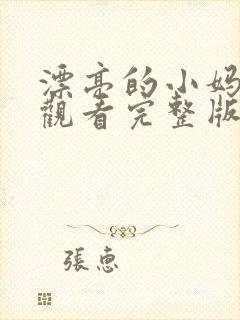 漂亮的小妈
觀看完整版
張惠